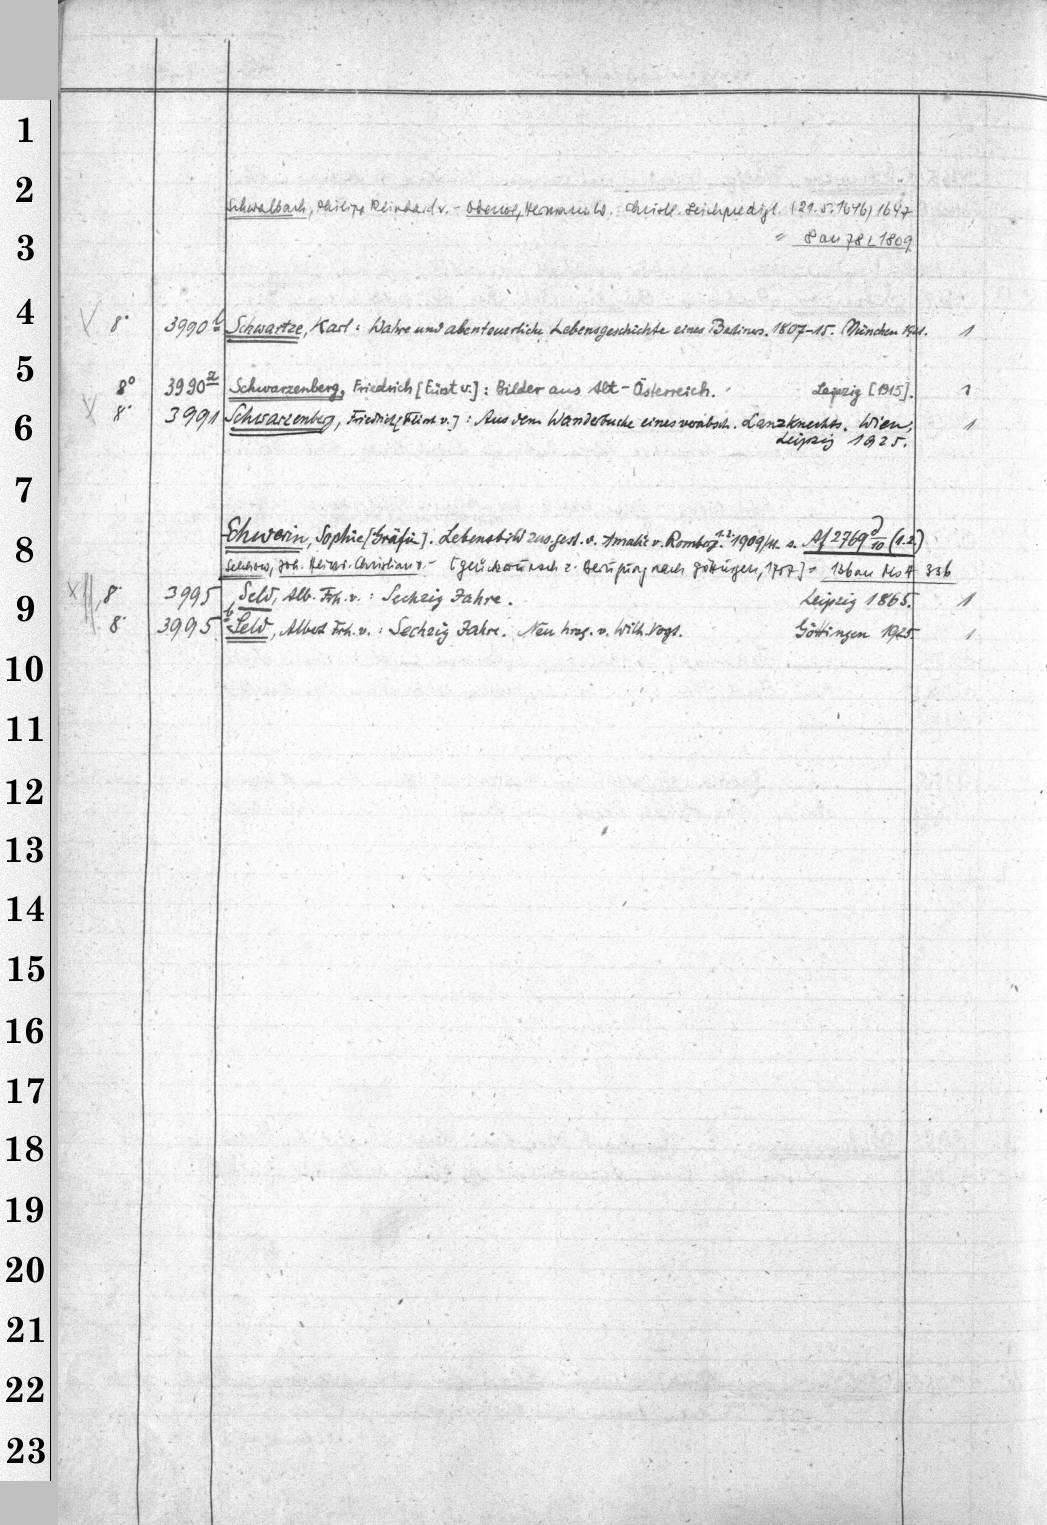 1
2
Schwalbach, Philipp Reinhard v. - Hermann W. Christl. Leichpredigt. (21.5.1646) 1647
3
= 8 an 78 L 1809
4
8° 3990 b Schwartze, Karl: Wahre und abenteuerliche Lebensgeschichte eines Berliners. 1807-15. München 1 
5
8° 3990 a Schwarzenberg, Friedrich [Fürst v.]: Bilder aus Alt-Österreich. Leipzig [1915]. 1
6
8° 3991 Schwarzenberg, Friedrich [Fürst v.]: Aus dem Wanderbuche eines verabsch. Lanzknechts. Wien, 1
Leipzig 1925.
7
8
Schwerin, Sophie [Gräfin]. Lebensbild zusgest. v. Amalie v. Romberg. 1.2. 1909/11. s. Af 2769 d/10 (1.2.)
Selchow, Joh. Heinr. Christian v. - [Glückwunsch z. Berufung nach Göttingen, 1757] = 336
9
8° 3995 Seld, Alb. Frh. v.: Sechzig Jahre. Leipzig 1865. 1
8° 3995 b Seld, Albert Frh. v.: Sechzig Jahre. Neu hrsg. v. Wilh. Vogt. Göttingen 1925. 1
10
11
12
13
14
15
16
17
18
19
20
21
22
23